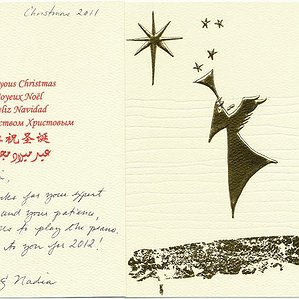 Christmas 2011
yous Christmas
Joyeux Noël
eliz Navidad
ством Христовым
祝圣诞
for your expert
and your patience,
to play the piano.
to you for 2012!
& Nadia